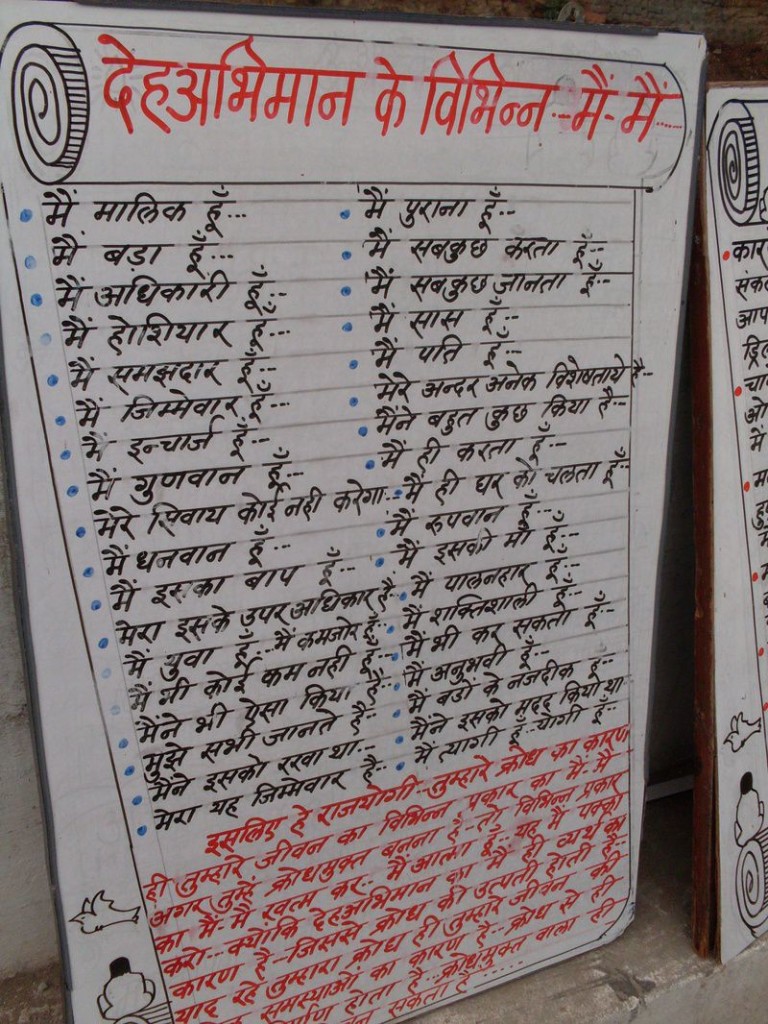 देहअभिमान के विभिन्न--मैं-मैं......
मैं मालिक हूँ...
मैं बड़ा हूँ...
मैं अधिकारी हूँ...
मैं होशियार हूँ...
मैं समझदार हूँ...
मैं जिम्मेवार हूँ...
मैं इन्चार्ज हूँ...
मैं गुणवान हूँ...
मेरे सिवाय कोई नही करेगा...
मैं धनवान हूँ...
मैं इसका बाप हूँ...
मेरा इसके उपर अधिकार है...
मैं युवा हूँ... मैं कमजोर हूँ...
मैं भी कोई कम नही हूँ...
मैंने भी ऐसा किया है...
मुझे सभी जानते है...
मैंने इसको रखा था...
मेरा यह जिम्मेवार है...
मैं पुराना हूँ...
मैं सबकुछ करता हूँ...
मैं सबकुछ जानता हूँ...
मैं सास हूँ...
मैं पति हूँ...
मेरे अन्दर अनेक विशेषताये है...
मैंने बहुत कुछ किया है...
मैं ही करता हूँ...
मैं ही घर को चलता हूँ...
मैं रुपवान हूँ...
मैं इसकी माँ हूँ...
मैं पालनहार हूँ...
मैं शक्तिशाली हूँ...
मैं भी कर सकता हूँ...
मैं अनुभवी हूँ...
मैं बडों के नजदीक हूँ...
मैंने इसको मदद किया था
मैं त्यागी हूँ...योगी हूँ...
इसलिए हे राजयोगी--तुम्हारे क्रोध का कारण
ही तुम्हारे जीवन का विभिन्न प्रकार का मैं-मैं
अगर तुम्हें क्रोधमुक्त बनना है--तो विभिन्न प्रकार
का मैं-मैं खत्म कर.. मैं आत्मा हूँ.. यह मैं पक्का
करो...क्योंकि देहअभिमान का मैं ही व्यर्थ का
कारण है--जिससे क्रोध की उत्पती होती है...
याद रहे तुम्हारा क्रोध ही तुम्हारे जीवन की
समस्याओं का कारण है...क्रोध से ही
होता है...क्रोधमुक्त वाला ही
बन सकता है......
कार
संक
आप